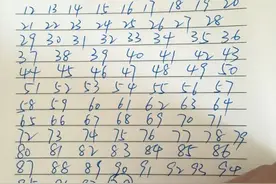 12 13 14 15 16 17 18 19 20
21 22 23 24 25 26 27 28
29 30 31 32 33 34 35 36
37 38 39 40 41 42 43
44 45 46 47 48 49 50
51 52 53 54 55 56 57
58 59 60 61 62 63 64
65 66 67 68 69 70 71
72 73 74 75 76 77 78 79
80 81 82 83 84 85 86
87 88 89 90 91 92 93 94